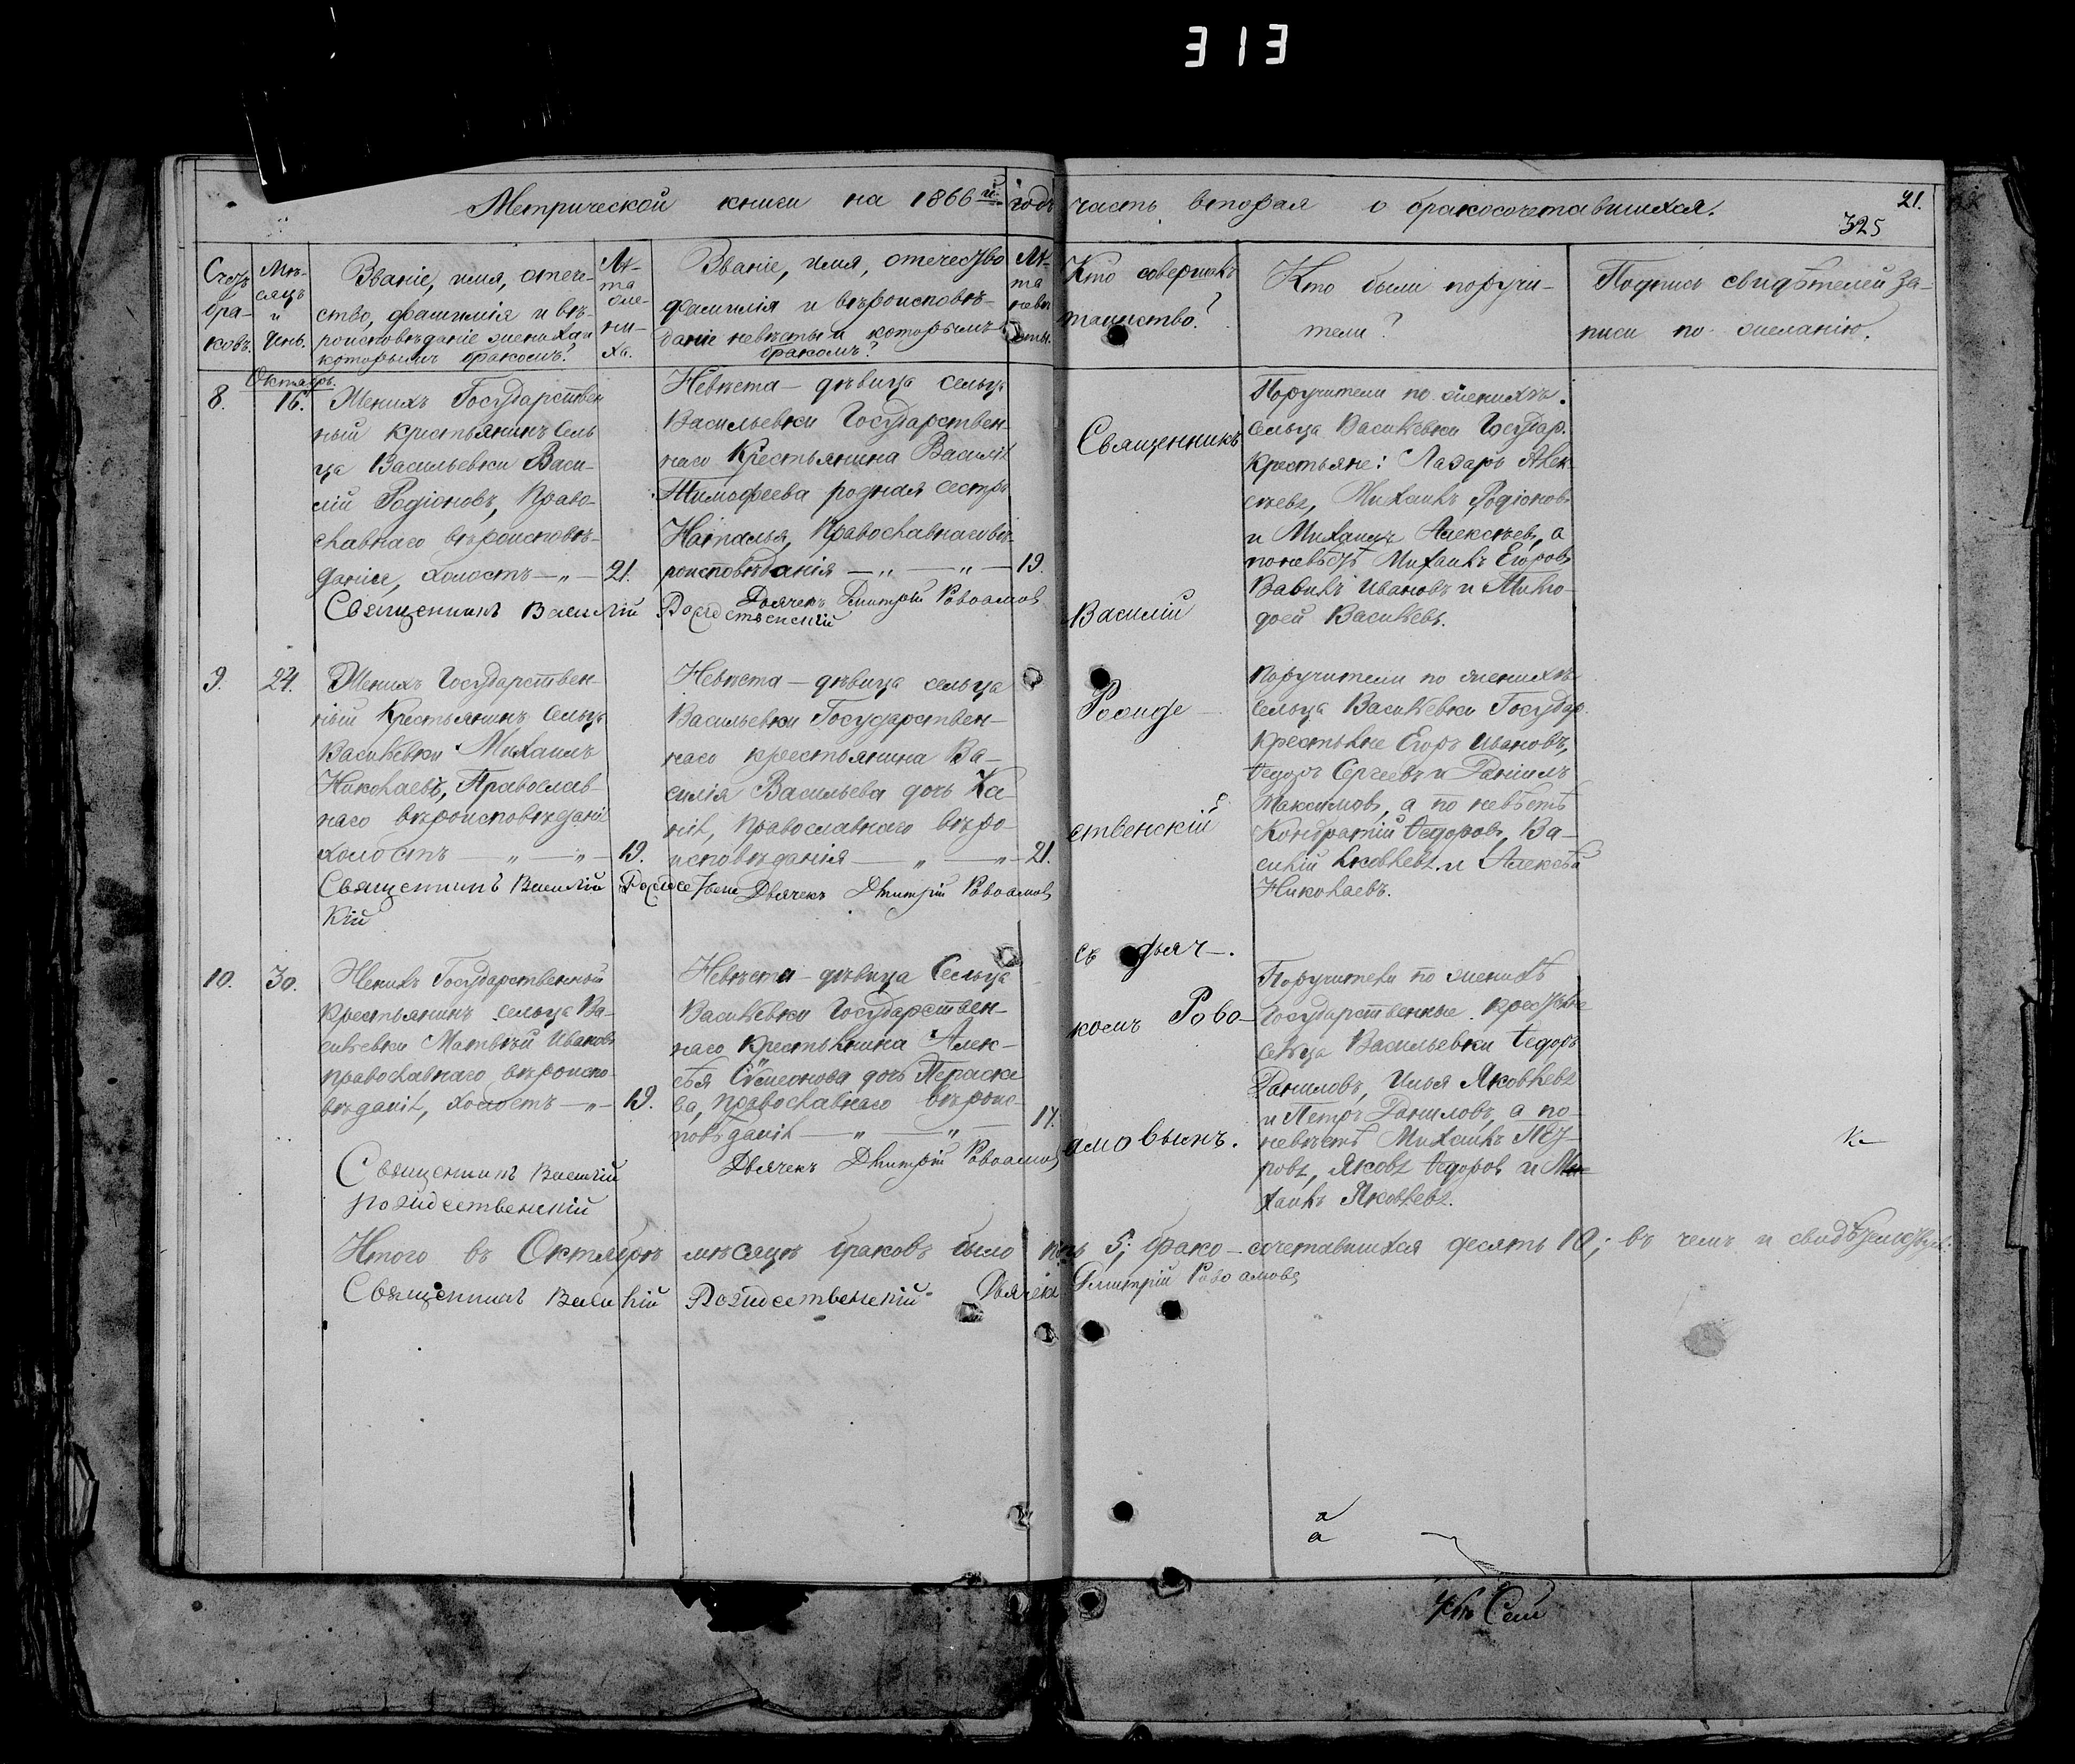 313
Метрической книги на 1866й годъ часть вторая о бракосочетавшихся.
21.
325
Счетъ бра-ковъ.
Мѣ-сяцъ и день.
Званіе, имя, отече-
ство, фамилія и вѣ-
роисповѣданіе жениха и
которымъ бракомъ?
Лѣ-
та
же-
ни-
ха.
Званіе, имя, отечество
фамилія и вѣроисповѣ-
даніе невѣсты и которымъ
бракомъ?
Лѣ-
та
невѣ
сты.
Кто совершалъ
таинство?
Кто были поручи-
тели?
Подпись свидѣтелей за-
писи по желанію.
Октябрь.
8.
16.
Женихъ Государствен
ный крестьянинъ Сель
ца Васильевки Васи-
лій Родіоновъ, Право-
славнаго вѣроисповѣ-
данія, холостъ —„—
21.
Невѣста — дѣвица сельца
Васильевки Государствен-
наго Крестьянина Василія
Тимофеева родная сестра
Наталья, Православнаго вѣ-
роисповѣданія —„— —„—
19.
Священникъ Василій Рождественскій
Дьячекъ Дмитрій Ровоамовъ
Поручители по женихѣ.
сельца Васильевки Государ.
крестьяне: Лазарь Алек-
сѣевъ, Михаилъ Родіоновъ
и Михаилъ Алексѣевъ, а
по невѣстѣ Михаилъ Егоровъ
Вавилъ Ивановъ и Мино-
дой Васильевъ.
9.
24.
Женихъ Государствен-
ный Крестьянинъ Сельца
Васильевки Михаилъ
Николаевъ, Православ-
наго вѣроисповѣданія
холостъ —„—„—
19.
Невѣста — дѣвица сельца
Васильевки Государствен-
наго крестьянина Ва-
силія Васильева дочь
Православнаго вѣро-
исповѣданія —„—„—
21.
Священникъ Василій Рождествен
кій
Дьячекъ Дмитрій Ровоамовъ
Поручители по женихѣ
сельца Васильевки Государ.
Крестьяне Егоръ Ивановъ,
Ѳедоръ Сергеевъ и Даніилъ
Максимовъ, а по невѣстѣ
Кондратій Ѳедоровъ, Ва-
силій Яковлевъ и Алексѣй
Николаевъ.
10.
30.
Женихъ Государственный
Крестьянинъ сельца Ва-
сильевки Матвѣй Ивановъ
православнаго вѣроиспо-
вѣданія, холостъ —„—
19.
Невѣста — дѣвица Сельца
Васильевки Государствен-
наго крестьянина Алек-
сѣя Сѵмеонова дочь Параске
ва, православнаго вѣроис-
повѣданія —„—„—
17.
Священникъ Василій
рождественскій
Дьячекъ Дмитрій Ровоамовъ
Поручители по женихѣ
Государственные крестьяне
сельца Васильевки Ѳедоръ
Даниловъ, Илья Яковлевъ
и Петръ Даниловъ, а по-
невѣстѣ Михаилъ Пет-
ровъ, Яковъ Ѳедоровъ и Ми-
хаилъ Яковлевъ.
Священникъ
Василій
Рожде-
ственскій
съ дьяч-.
комъ Рово-
амовымъ.
Итого въ Октябрѣ мѣсяцѣ браковъ было пять 5; брако-сочетавшихся десять 10; въ чемъ и свидѣтельству
Священникъ Василій Рождественскій Дьячекъ Дмитрій Ровоамовъ